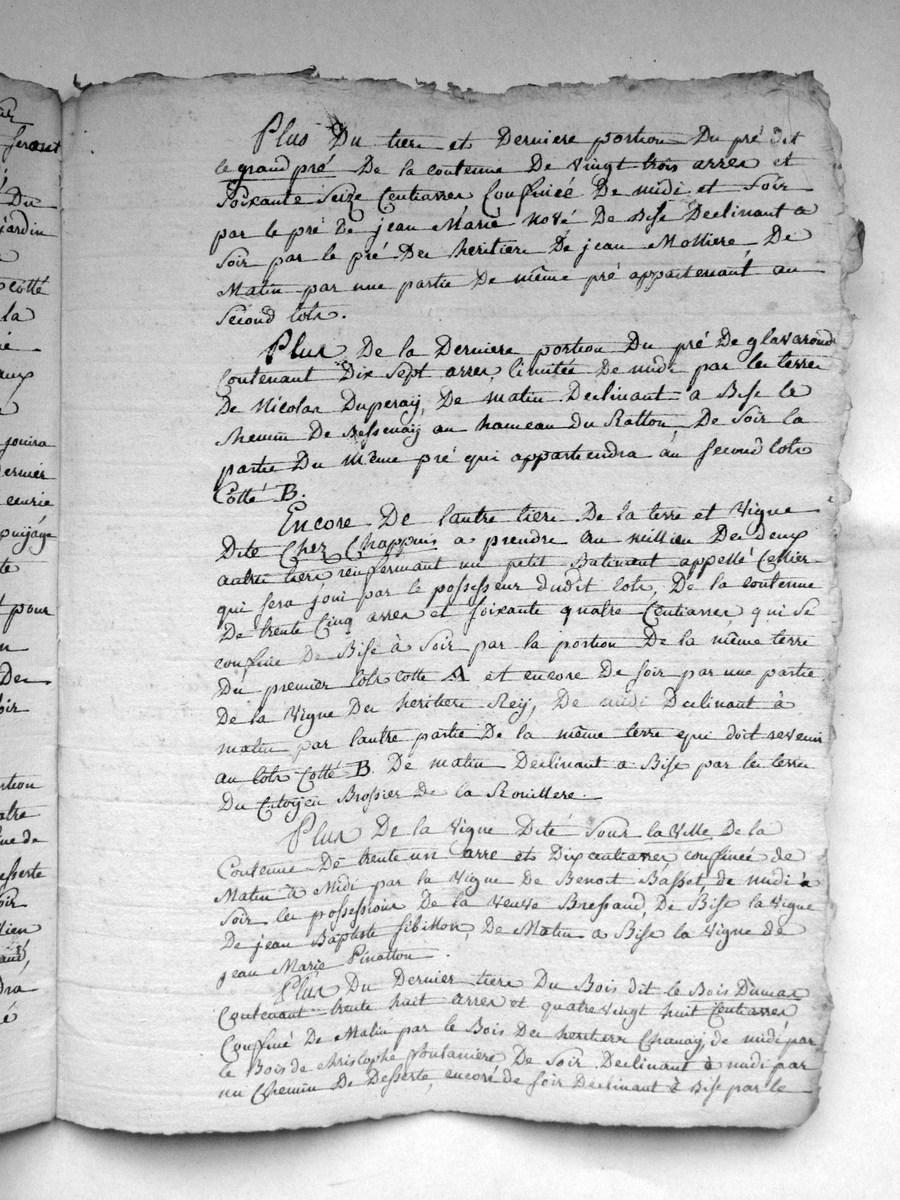 feront
Du
jardin
cotté
la
aux
jouira
dernier
ecurie
puijage
pour
Des
soir
portion
autre
desserte
soir
Plus Du tiers et Derniere portion Du pré dit
le grand pré De la contenue De vingt trois arres et
Soixante Seize Centiarres Confinée De midi et Soir
par le pré De jean Marie Nové De Bise Declinant a
Soir par le pré Des heritiers De jean Molliere De
Matin par une partie De même pré appartenant au
Second lots.
Plus De la Derniere portion Du pré De glavarond
Contenant Dix Sept arres, limitée De midi par les terres
De Nicolas Duperaÿ, De matin Declinant a Bise le
chemin De Bessenaÿ au hameau du Ratton De Soir la
partie Du même pré qui appartiendra au second lots
Cotté B.
Encore De l'autre tiers De la terre et vigne
Dite Chez Chappuis a prendre au millieu Des Deux
autres tiers renfermant un petit Batiment appellé Cellier
qui sera joui par le possesseur dudit lots, De la contenue
De trente Cinq arres et soixante quatre Centiarres qui se
confine De Bise à Soir par la portion De la même terre
Du premier lots cotté A et encore De soir par une partie
De la vigne Des heritiers Reÿ, De midi Declinant à
matin par l'autre partie De la même terre qui doit revenir
au lots Cotté B. De matin Declinant a Bise par les terres
Du Citoyen Brossier De la Rouillere.
Plus De la vigne Dite Sous la ville De la
Contenue De trente un arre et Dix centiarres confinée de
Matin à Midi par la vigne De Benoit Basset, de midi à
Soir les possessions De la veuve Bressaud, De Bise la vigne
De jean Baptiste Sibillon, De Matin a Bise la vigne de
jean Marie Pinatton.
Plus Du Dernier tiers Du Bois dit le Bois Dumas
Contenant trente huit arres et quatre vingt huit Centiarres
Confiné De Matin par le Bois Des heritiers Chanaÿ, de midi par
le Bois de Christophe De Soir Declinant à midi par
un Chemin De Desserte, encore de soir Declinant à Bise par le